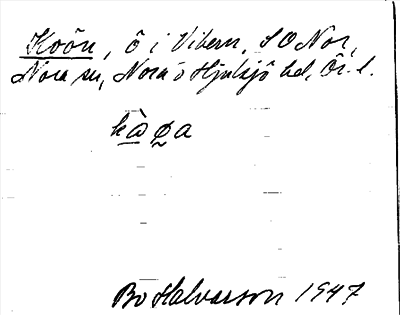 Koön, ö i Vibern, SO Nor,
Nora sn, Nora o Hjulsjö hd, Ör. l.
Bo Halvarson 1947